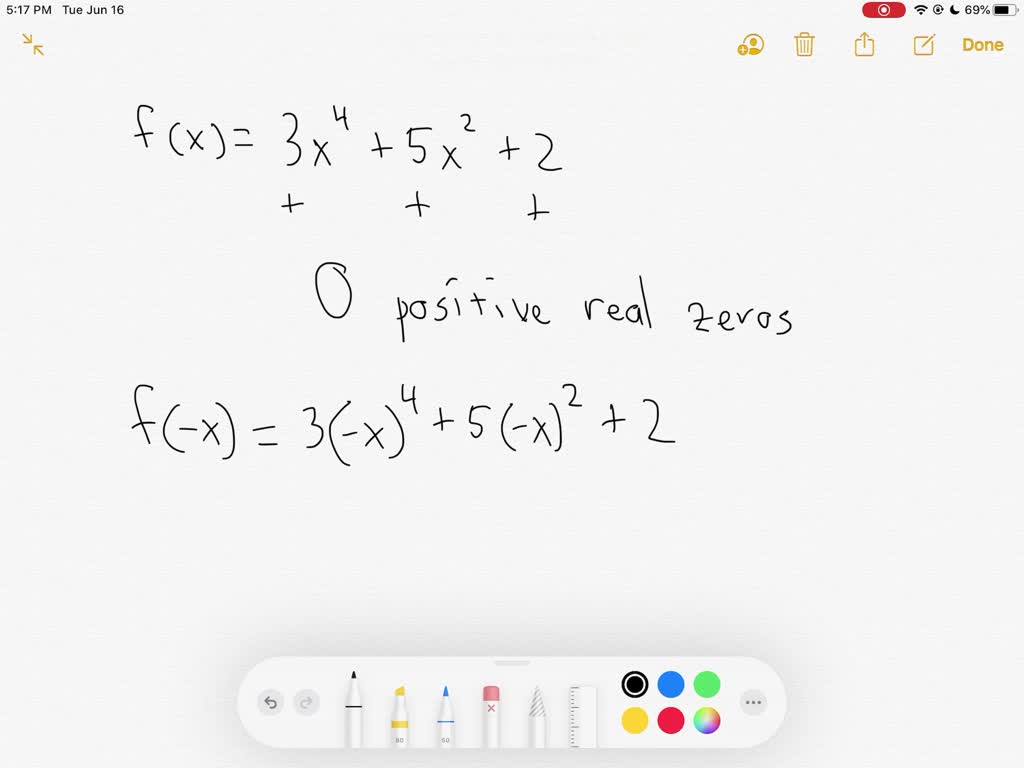 5:17 PM Tue Jun 16 69%
Done
f(x) = 3x⁴ + 5x² + 2
+ + +
0 positive real zeros
f(-x) = 3(-x)⁴ + 5(-x)² + 2
80 50